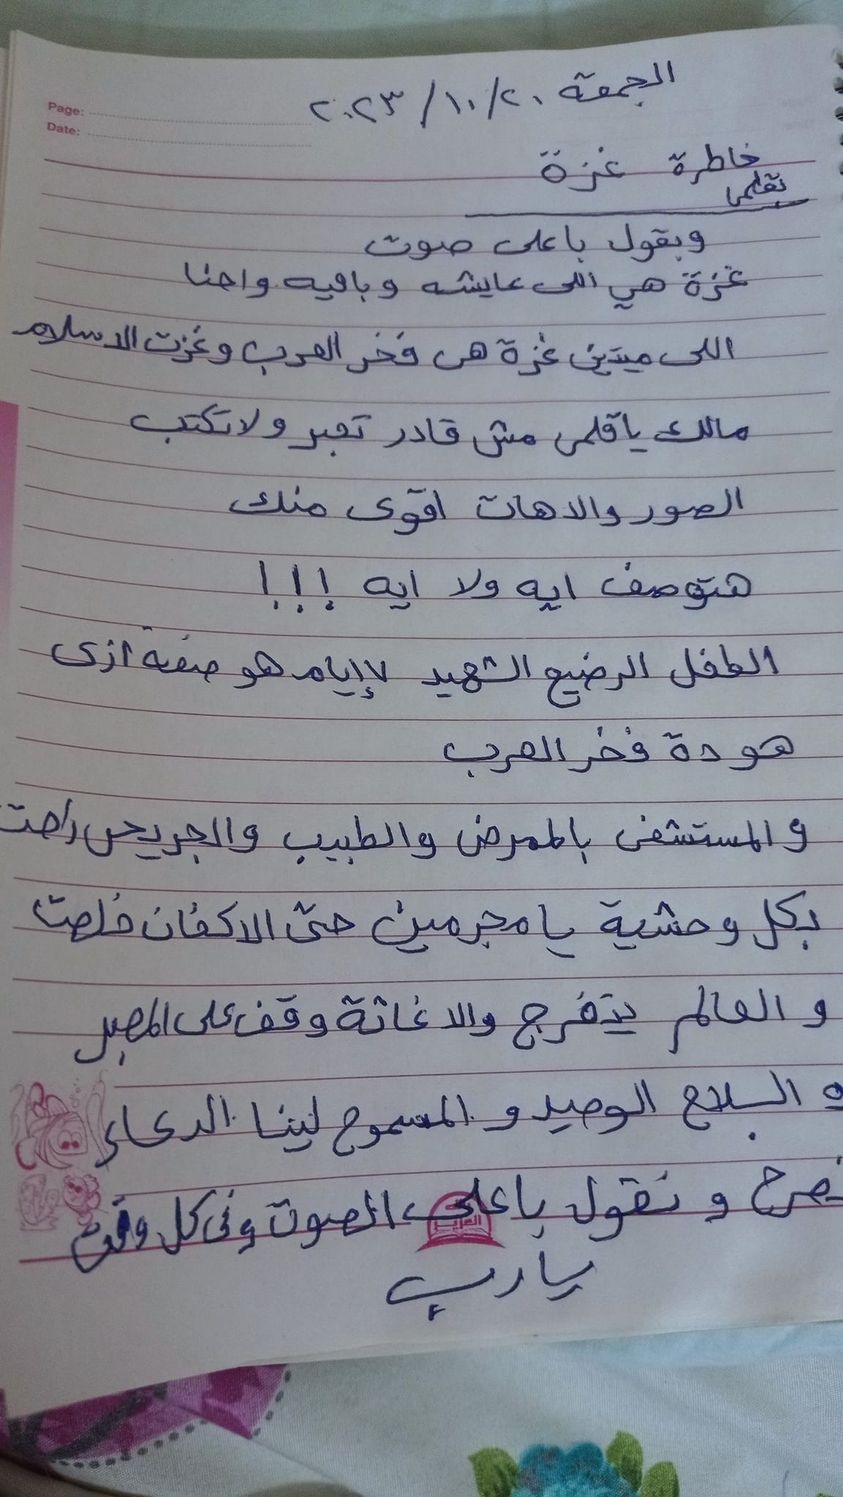 Page:
Date:
الجمعة ٢٠/١٠/٢٠٢٣
خاطرة غزة
بقلمى
وبقول باعلى صوت
غزة هي اللى عايشه وباقيه واحنا
اللى ميتين غزة هى فخر العرب وعزت الاسلام
مالك ياقلمى مش قادر تعبر ولاتكتب
الصور والاهات اقوى منك
هتوصف ايه ولا ايه !!!
الطفل الرضيع الشهيد ٧ ايام هو صفته ازى
هو دة فخر العرب
والمستشفى بالممرض والطبيب والجريحى راحت
بكل وحشية يا مجرمين حتى الاكفان خلصت
والعالم يتفرج والاغاثة وقف على المعبر
والسلاح الوحيد و المسموح لينا الدعاء
نصرخ و نقول باعلى الصوت وفى كل وقت
يارب